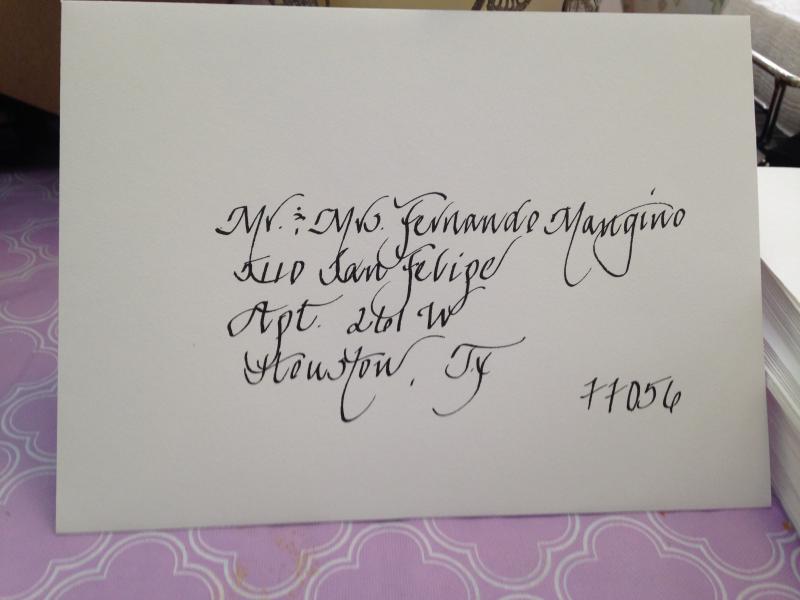 Mr. & Mrs. Fernando Mangino
5110 San Felipe
Apt. 261 W
Houston, Tx
77056